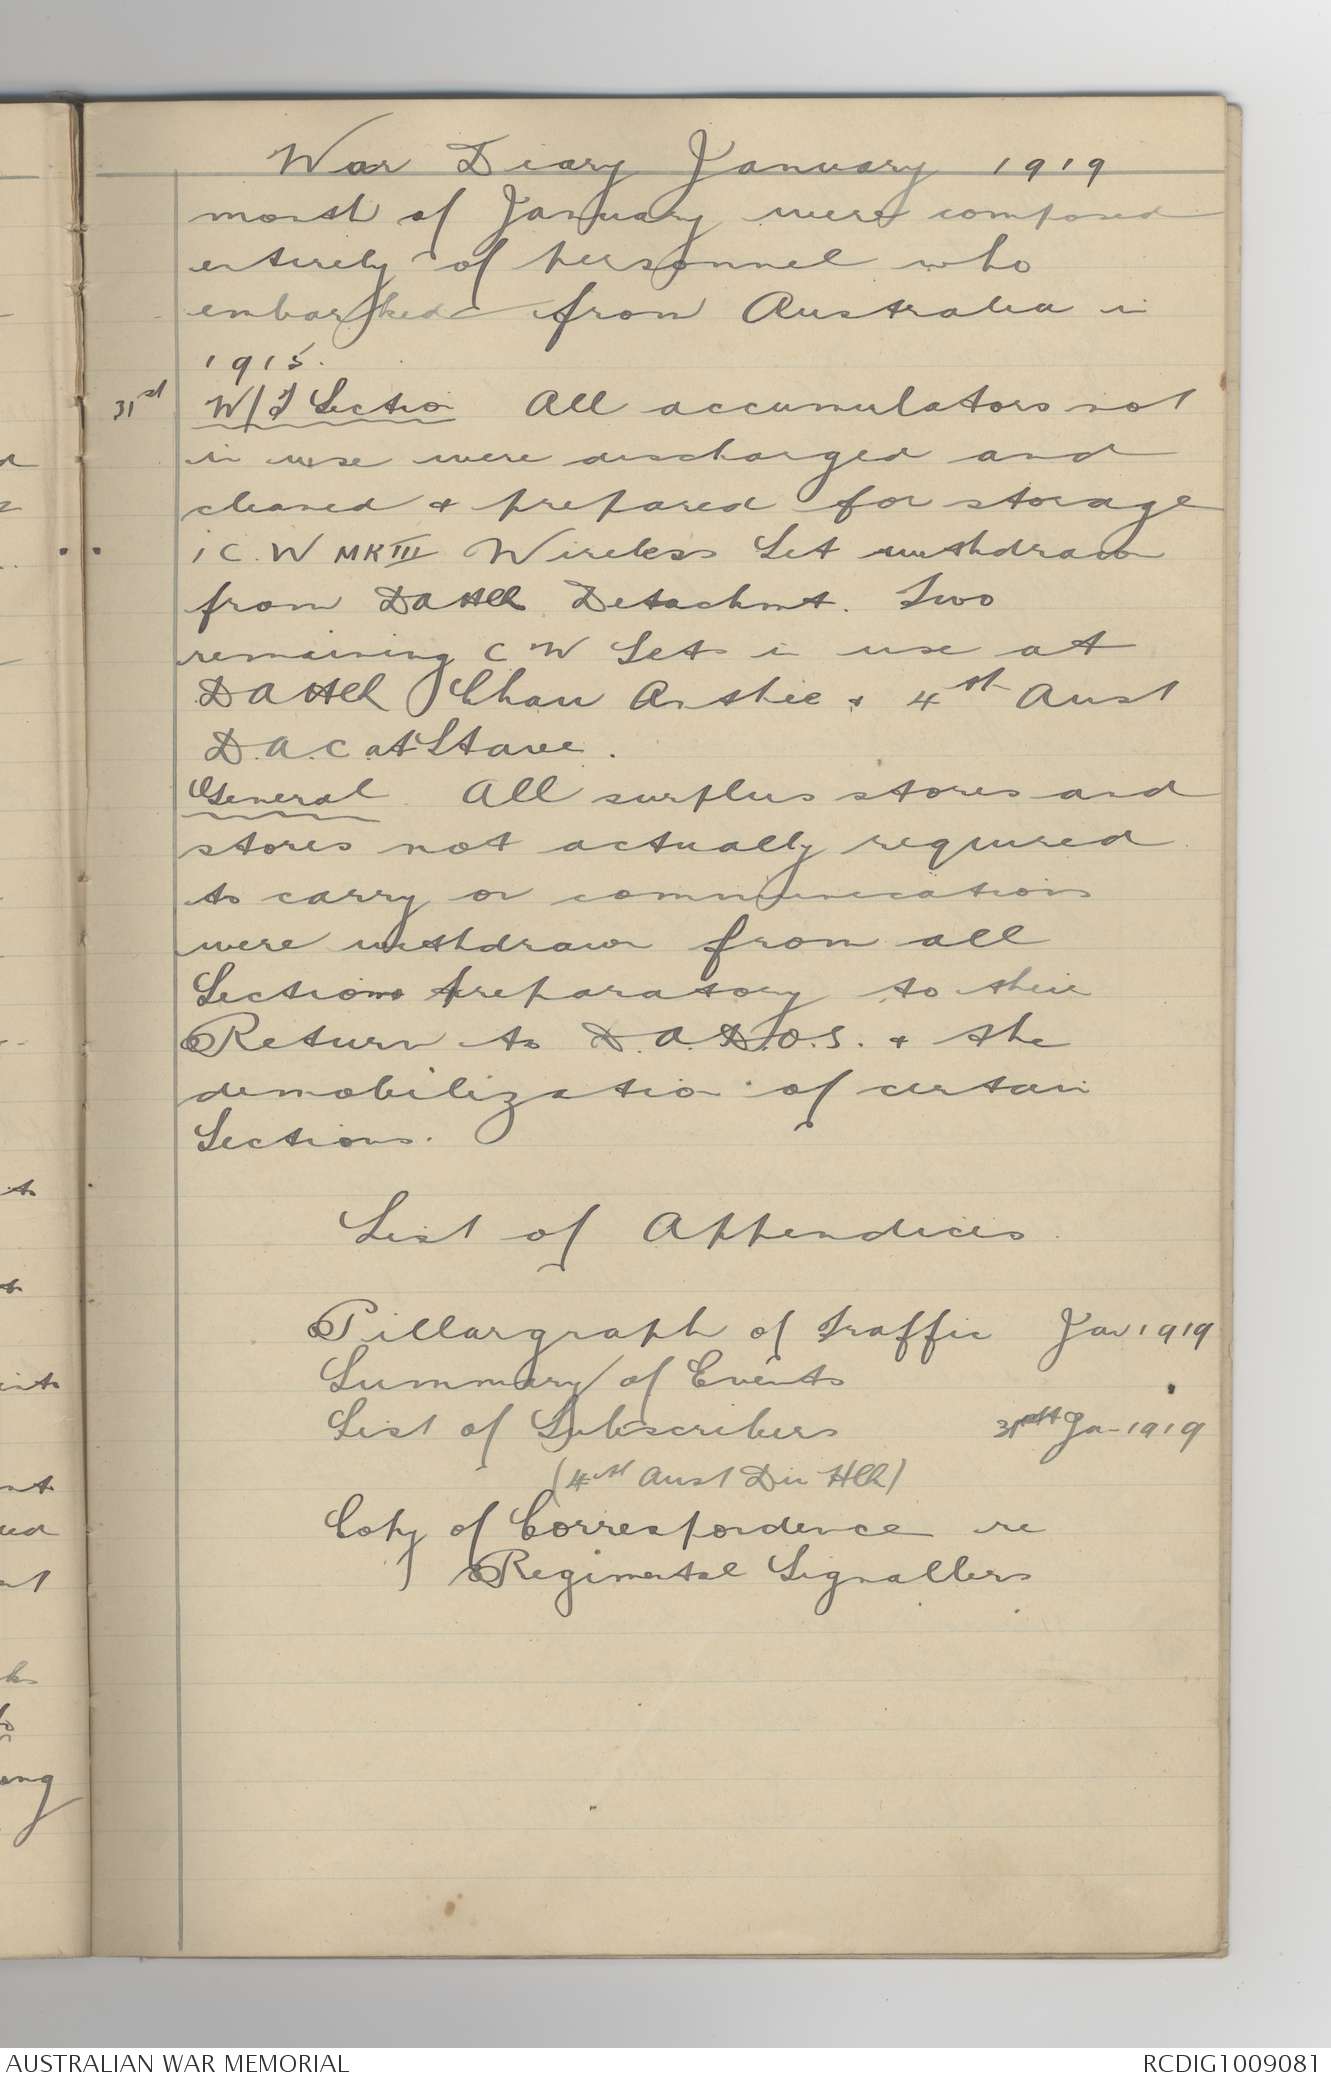 War Diary January 1919
month of January were composed
entirely of personnel who
embarked from Australia in
1915.
31st W/T Section All accumulators not
in use were discharged and
cleaned & prepared for storage
1 C.W MK III Wireless Set withdrawn
from DAHQ Detachmt. Two
remaining C W Sets in use at
DAHQ Chau & 4th Aust
D.A.C at Stave.
General All surplus stores and
stores not actually required
to carry on communications
were withdrawn from all
Sections preparatory to their
Return to D.A.D.O.S. & the
demobilization of certain
Sections.
List of Appendices
Pillargraph of Traffic Jan 1919
Summary of Events
List of Subscribers 31st Jan 1919
(4th Aust Div HQ)
Copy of Correspondence re
Regimental Signallers
AUSTRALIAN WAR MEMORIAL
RCDIG1009081